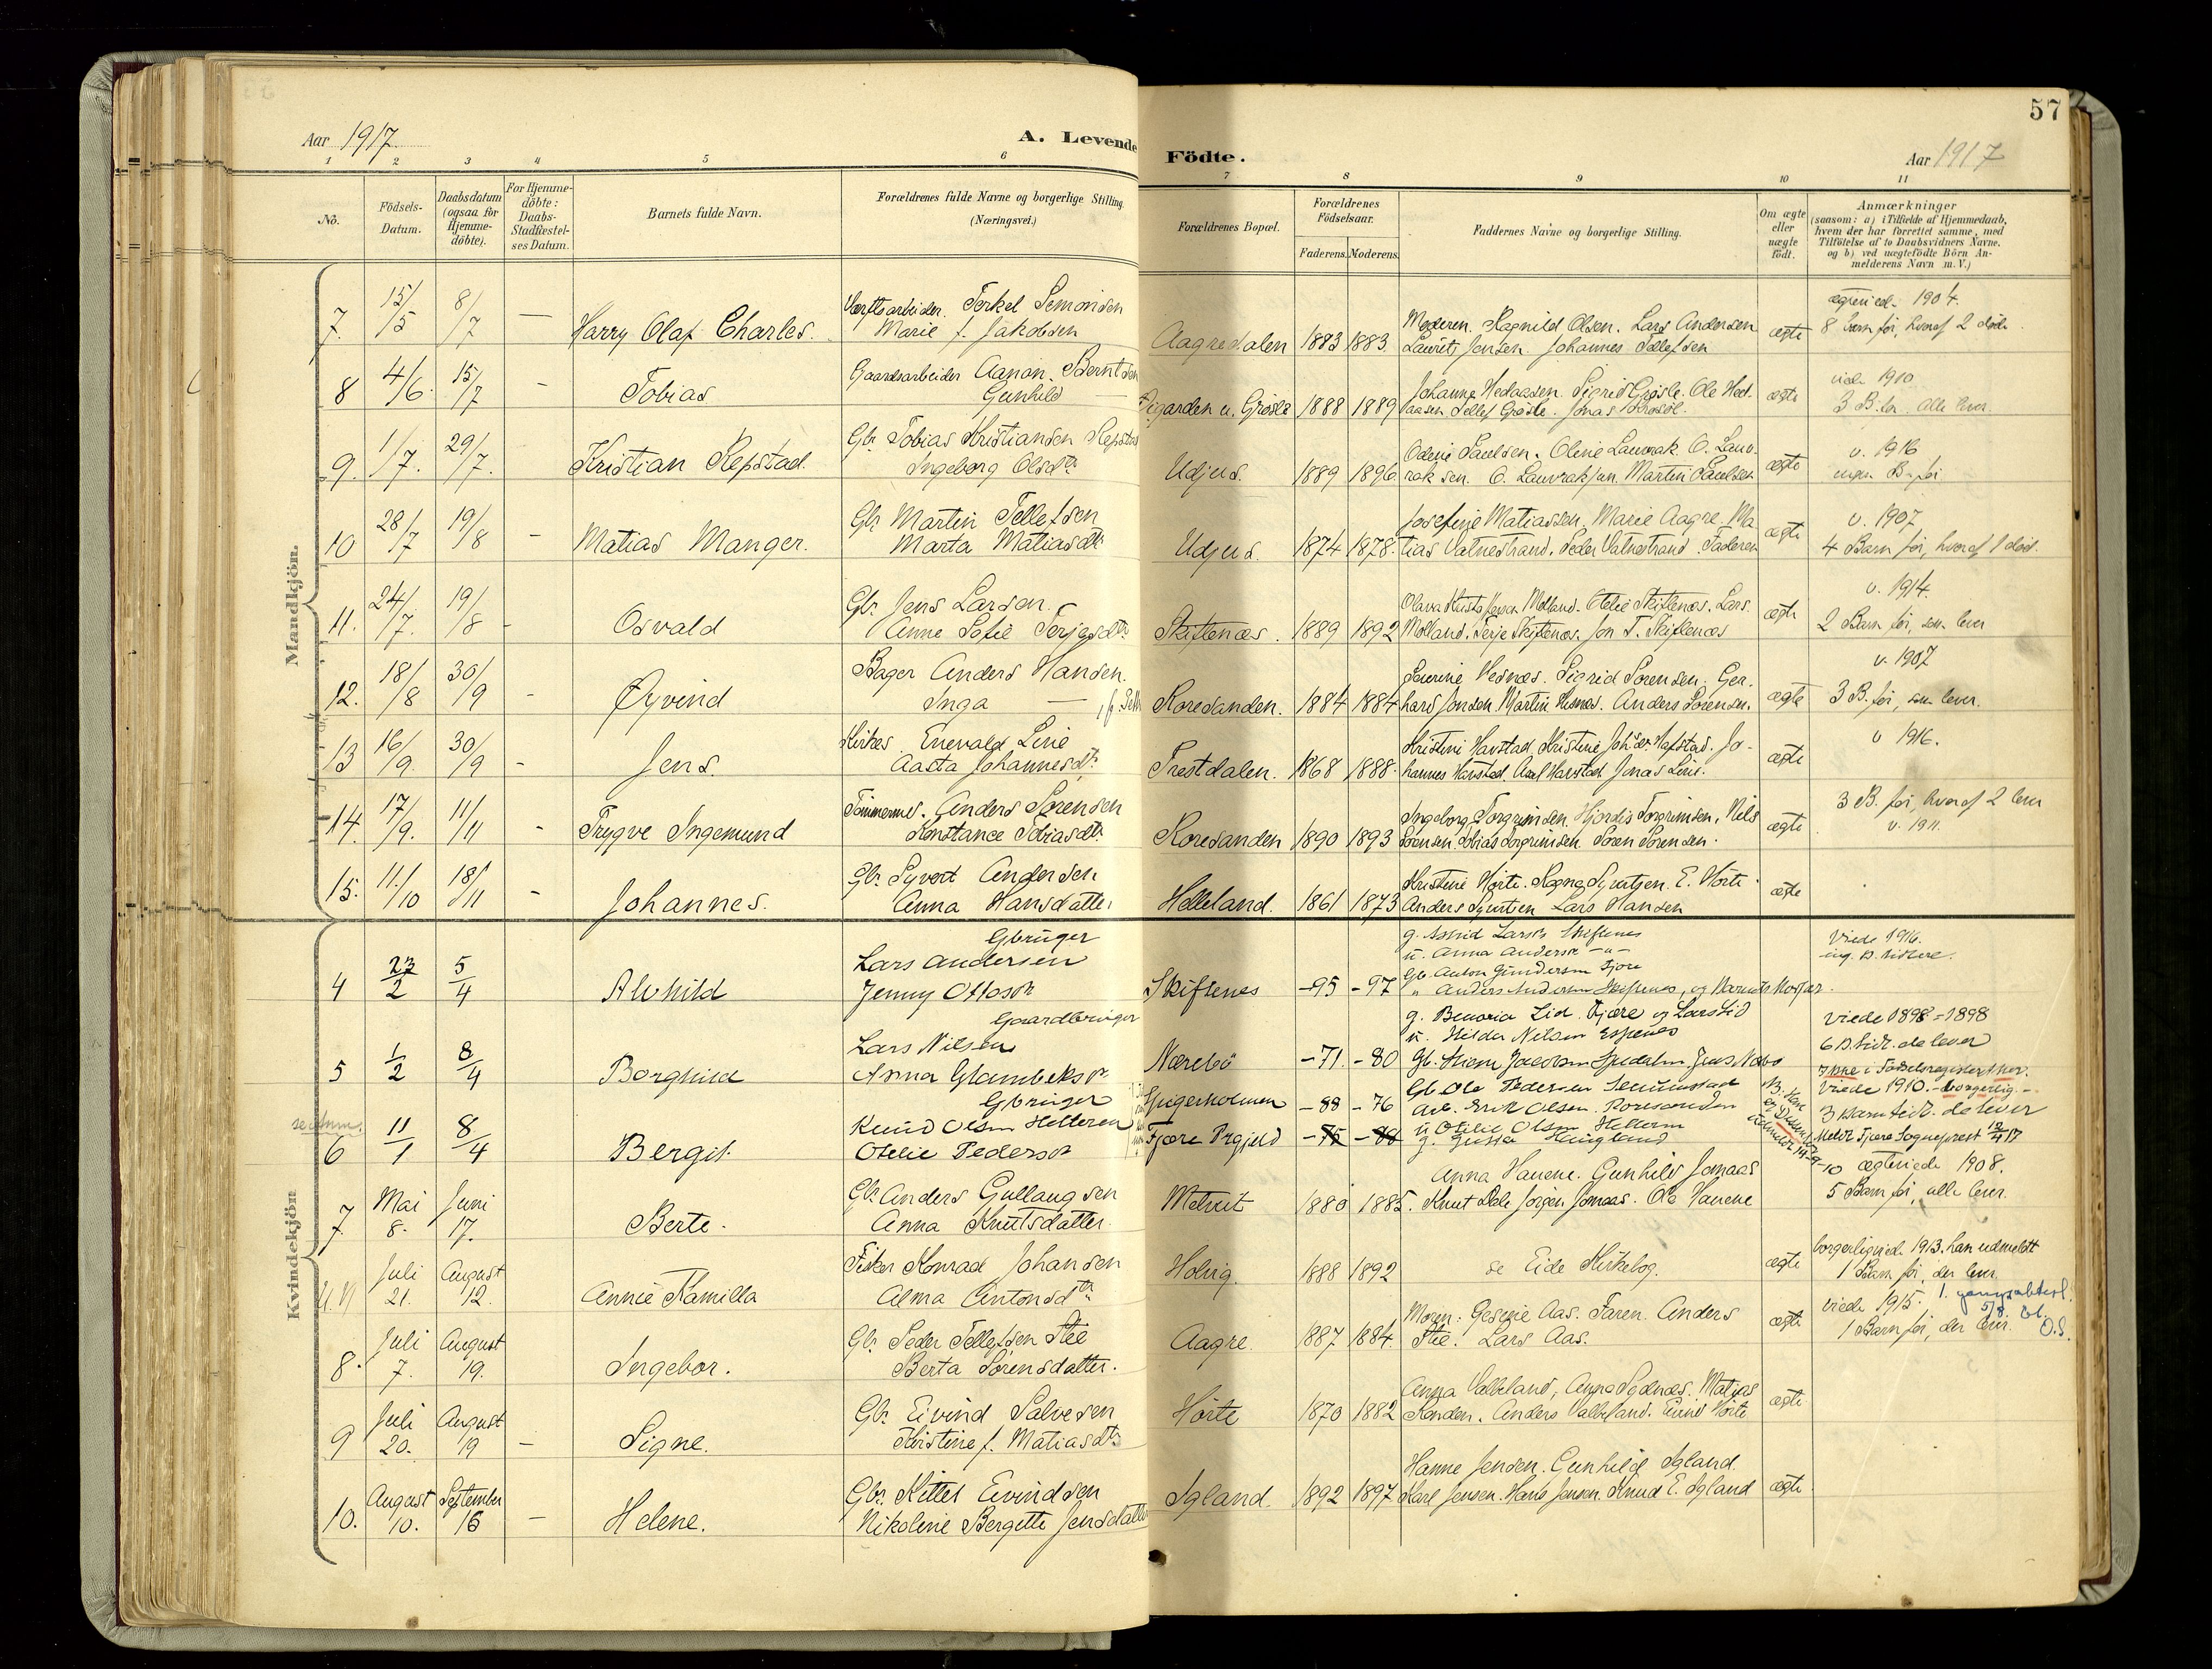 57
Aar 1917.
A. Levende Födte.
Aar 1917
1 2 3 4 5 6 7 8 9 10 11
No.
Födsels-Datum.
Daabsdatum (ogsaa for Hjemme-döbte).
For Hjemme-döbte: Daabs-Stadfæstel-ses Datum.
Barnets fulde Navn.
Forældrenes fulde Navne og borgerlige Stilling
(Næringsvei.)
Forældrenes Bopæl.
Forældrenes Födselsaar.
Faderens. Moderens.
Faddernes Navne og borgerlige Stilling.
Om ægte eller uægte födt.
Anmærkninger
(saasom: a) i Tilfælde af Hjemmedaab,
hvem der har forrettet samme, med
Tilföielse af to Daabsvidners Navne,
og b) ved uægtefödte Börn An-
melderens Navn m. V.)
Mandkjön.
7. 15/5 8/7 — Harry Olaf Charles.
Værftsarbeider. Terkel Simonsen
Marie f. Jakobsen
Aagredalen 1883 1883
Moderen. Ragnild Olsen. Lars Andersen
Laurits Jensen. Johannes Tellefsen
ægte
1904.
8 Barn før, hvoraf 2 døde
8 4/6. 15/7 - Tobias
Gaardsarbeider Aanon. Berntsen
Gunhild —
Grøsle 1888 1889
Johanne Hedaasen. Sigrid Grøsle. Ole Hed-
aasen. Tellef Grøsle. Jonas
ægte
viede 1910
3 B. før. Alle lever.
9. 1/7. 29/7. Kristian Repstad.
Gbr. Tobias Kristiansen Repstad
Ingeborg Olsdtr.
Udjus. 1889 1896.
Odine Paulsen. Oline Lauvrak. O. Lauv-
rak sen. O. Lauvrak jun. Martin Paulsen
ægte
v. 1916
ingen B. før
10 28/7 19/8 - Matias Manger.
Gbr. Martin Tellefsen
Marta Matiasdtr.
Udjus. 1874 1878.
Josefine Matiassen. Marie Aagre. Ma
tias Vatnestrand. Peder Vatnestrand. Faderen
ægte
v. 1907
4 Barn før, hvoraf 1 død.
11. 24/7. 19/8 - Osvald
Gbr. Jens Larsen.
Anne Sofie Terjesdtr.
Skiftenæs. 1889 1892
Molland. Otelie Skiftenæs. Lars
Molland. Terje Skiftenæs. Jon T. Skiftenæs
ægte
v. 1914.
2 Barn før, som lever
12. 18/8 30/9 - Øyvind
Bager Anders Hansen.
Inga —
Roresanden. 1884 1884
Laurine Hesnæs. Sigrid Sørensen. Ger-
hard Jonsen. Martin Hesnæs. Anders Sørensen.
ægte
v. 1907
3 B. før, som lever.
13 16/9. 30/9 - Jens.
Enevald Line
Aasta Johannesdtr.
Trestdalen. 1868 1888.
Kristine Havstad. Kristine Johs.dtr. Hafstad. Jo-
hannes Havstad. Axel Havstad. Jonas Line.
ægte
v 1916.
14. 17/9. 11/11 - Trygve Ingemund
Tømmerm. Anders Sørensen
Konstance Tobiasdtr.
Roresanden 1890 1893
Ingeborg Torgrimsen. Hjørdis Torgrimsen. Nils
Sørensen. Tobias Torgrimsen. Søren Sørensen.
ægte
3 B. før, hvoraf 2 lever
v. 1911.
15. 11./10 18/11 - Johannes.
Gbr. Syvert Andersen
Anna Hansdatter
Helleland. 1861 1873
Kristine Hørte. Ragna Syvertsen. E. Hørte
Anders Syvertsen Lars Hansen
ægte
Kvindekjön
4 23/2 5/4 Alvhild
Gbruger
Lars Andersen
Jenny Ottosdtr
Skiftenes -95 -97
g. Astrid Larsdtr Skiftenes
u. Anna Andersdtr -"-
Gb. Anton Gundersen Fjære
" Anders Andersen Skiftenes, og Barnets Morfar.
Viede 1916.
ing. B. tidlere.
5 1/2 8/4 Borghild
Gaardbruger
Lars Nilsen
Anna Glambeksdtr
Nærebö -71. -80
g. Lid. Fjære og Lars Lid
u. Hilda Nilsen
Viede 1898 = 1898
6 B. tidl. de lever
6 11/1 8/4 Bergit
Gbruger
Knud Olsen Helleren
Otelie Pedersdtr
-88 -76
Fjære Prgjeld -75 -80
Gb Ole Pedersen
Arb. Erik Olsen. Roresanden
u Otilie Olsen Helleren
g. Haugland
Ikke i Fødselsregisteret her.
Viede 1910.-borgerlig-
3 Barn tidl. de lever
Meldt Fjære Sogneprest 12/4 17
7. Mai 8. Juni 17. Berte.
Gbr. Anders Gullaugsen
Anna Knutsdatter
1880 1885.
Anna Hauene. Gunhild Jomaas
Knut Dale Jørgen Jomaas. Ole Hauene
ægteviede 1908.
5 Barn før, alle lever.
U.N Juli 21. August 12. Annie Kamilla
Fisker Konrad Johansen
Alma Antonsdtr.
Holvig. 1888 1892
se Eide Kirkebog.
ægte
borgerligvied. 1913. han udmeldt
1 Barn før, der lever.
8. Juli 7. August 19. Ingebor.
Gbr. Peder Tellefsen Stie
Berta Sørensdatter.
Aagre. 1887 1884.
Moren: Gesine Aas. Faren. Anders
Stie. Lars Aas.
ægte
viede 1915.
1 Barn før, der lever.
9 Juli 20. August 19 — Signe.
Gbr. Eivind Salvesen
Kirstine f. Matiasdtr.
Hørte 1870 1882
Anna Valbeland, Matias
Anders Valbeland. Eivind Hørte
ægte
10. August 10. September 16 — Helene.
Gbr. Kittel Eivindsen
Nikoline Bergette Jensdatter
Igland. 1892 1897
Hanne Jensen. Gunhild Igland.
Karl Jensen. Hans Jensen. Knud E. Igland
ægte